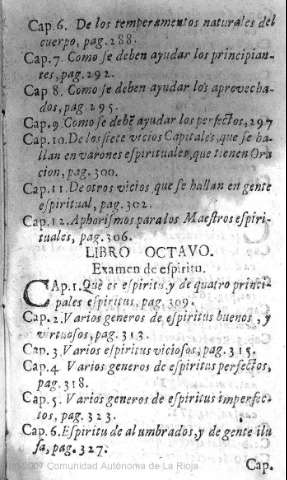 Cap.6. De los temperamentos naturales del
cuerpo, pag.288.
Cap.7. Como ſe deben ayudar los principian-
tes, pag.292.
Cap 8. Como ſe deben ayudar los aprovecha-
dos, pag 295.
Cap.9 Como ſe debẽ ayudar los perfectos, 297
Cap.10. De los ſiete vicios Capitales, que ſe ha-
llan en varones eſpirituales, que tienen Ora
cion, pag.300.
Cap.11. De otros vicios que ſe hallan en gente
eſpiritual, pag.302.
Cap.12. Aphoriſmos para los Maeſtros eſpiri-
tuales, pag.306.
LIBRO OCTAVO.
Examen de eſpiritu.
CAp.1. Què es eſpiritu, y de quatro princi-
pales eſpiritus, pag.309.
Cap.2. Varios generos de eſpiritus buenos, y
virtuoſos, pag.313.
Cap.3. Varios eſpiritus vicioſos, pag.315.
Cap.4. Varios generos de eſpiritus perfectos,
pag.318.
Cap.5. Varios generos de eſpiritus imperfec-
tos, pag.323.
Cap.6. Eſpiritu de alumbrados, y de gente ilu
ſa, pag.327.
Cap.
2007 Comunidad Autónoma de La Rioja